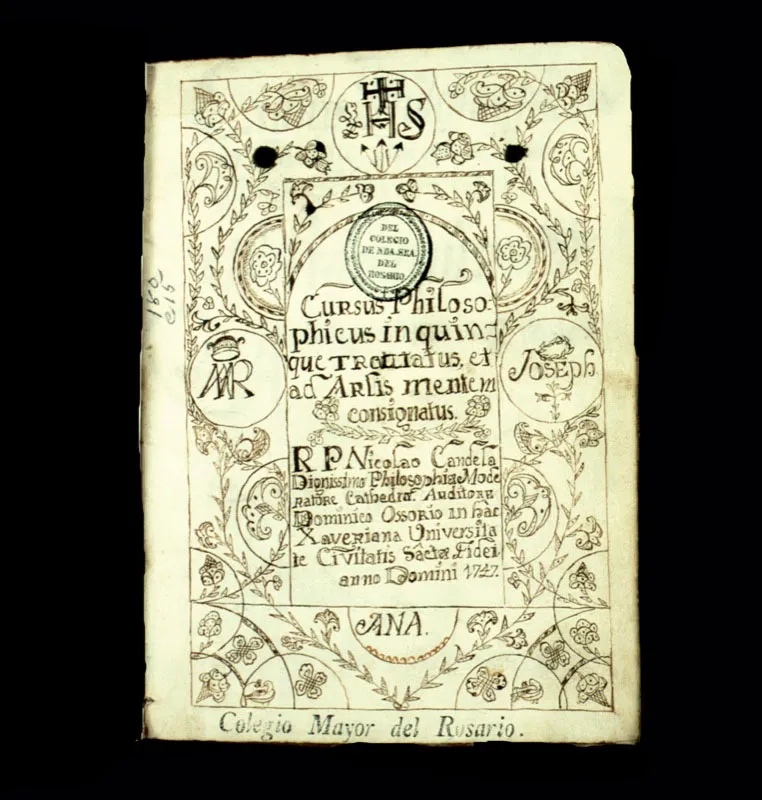 IHS
DEL
COLEGIO
DE NRA. SRA.
DEL
ROSARIO
Cursus Philoso-
phicus in quin-
que Tractatus, et
ad Arsis mentem
consignatus.
MR
Joseph
R P Nicolao Candela
Dignissimo Philosophiæ Mode
ratore Cathedræ Auditore
Dominico Ossorio in hac
Xaveriana Universita
te Civitatis Sactæ Fidei
anno Domini 1747.
ANA.
Colegio Mayor del Rosario.